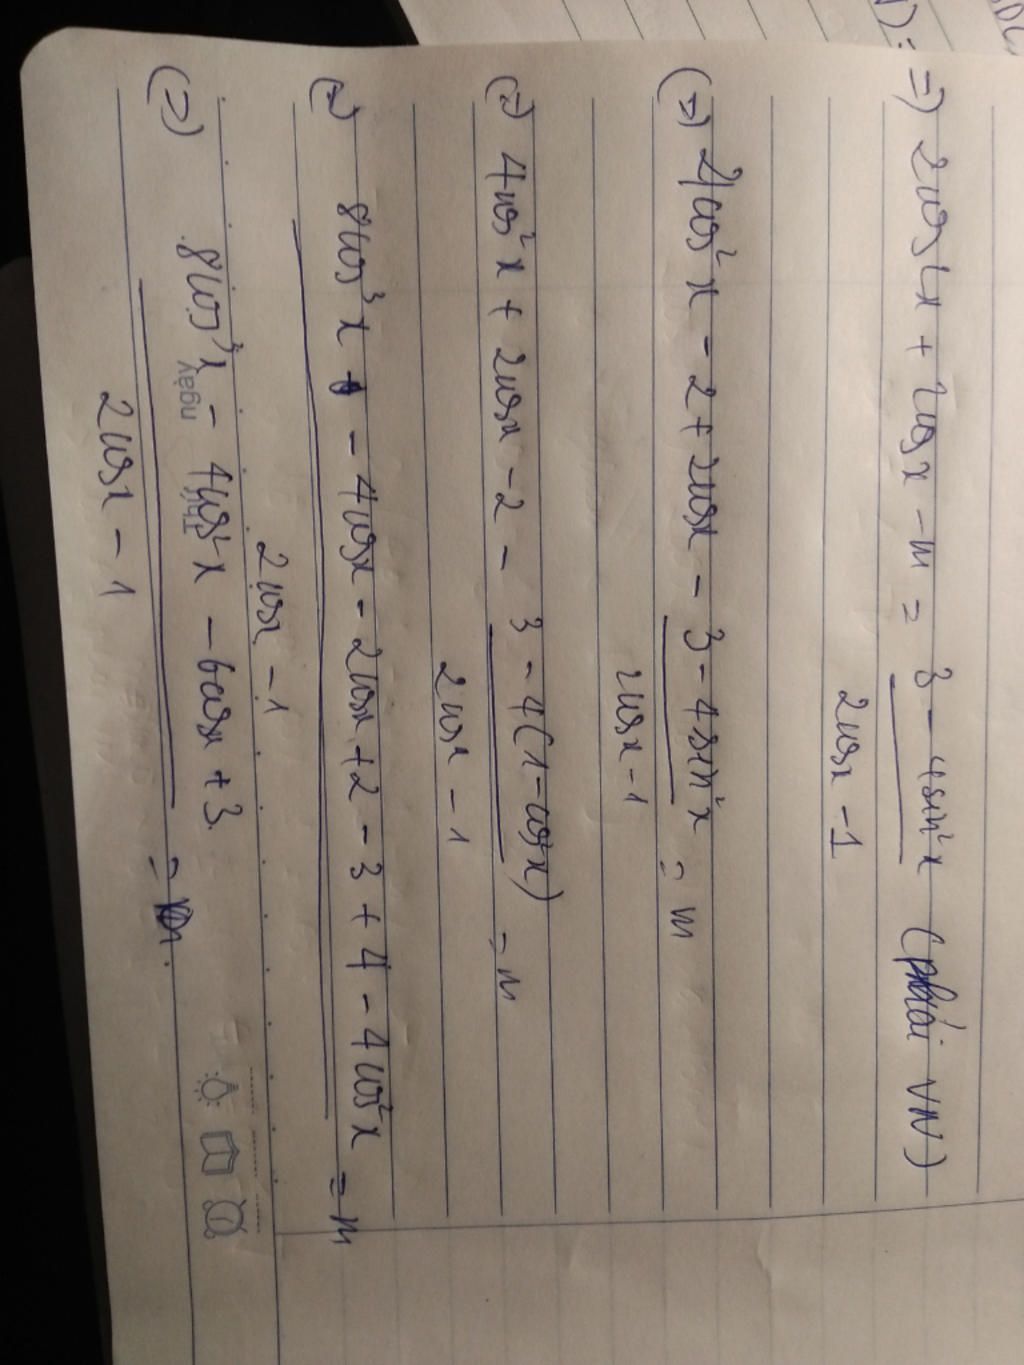 =) 2cos2x + 2cosx - m = (3 - 4sin²x)/(2cosx - 1) (phải VN)
(=) 4cos²x - 2 + 2cosx - (3 - 4sin²x)/(2cosx - 1) = m
(=) 4cos²x + 2cosx - 2 - (3 - 4(1 - cos²x))/(2cosx - 1) = m
(=) (8cos³x - 4cosx - 2cosx + 2 - 3 + 4 - 4cos²x)/(2cosx - 1) = m
(=) (8cos³x - 4cos²x - 6cosx + 3)/(2cosx - 1) = m.
ngày